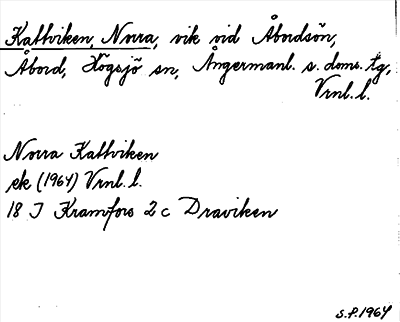 Kattviken, Norra, vik vid Åbordsön,
Åbord, Högsjö sn, Ångermanl. s. doms. tg,
Vrnl. l.
Norra Kattviken
ek (1964) Vrnl. l.
18 J Kramfors 2 c Draviken
S.P. 1964